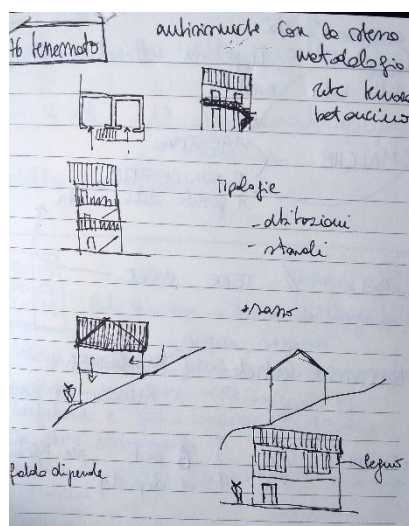 76 terremoto
antisismiche con la stessa
metodologia
rete
betoncino
Tipologie
- abitazioni
- stavoli
+ sasso
falda dipende
legno